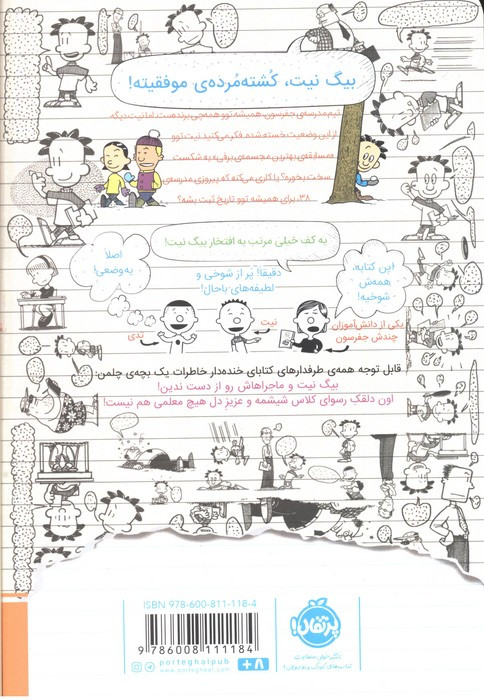 بیگ نیت، کُشته‌مُرده‌ی موفقیته!
تیم مدرسه‌ی جفرسون، همیشه توو همه‌چی برنده‌ست. اما نیت دیگه
از این وضعیت خسته شده. فکر می‌کنید نیت توو
مسابقه‌ی بهترین مجسمه‌ی برفی، یه شکست
سخت بخوره؟ یا کاری می‌کنه که پیروزی مدرسه‌ی
۳۸، برای همیشه توو تاریخ ثبت بشه؟
یه کف خیلی مرتب به افتخار بیگ نیت!
این کتابه،
همه‌ش
شوخیه!
دقیقاً! پُر از شوخی و
لطیفه‌های باحال!
اصلاً
یه‌وضعی!
یکی از دانش‌آموزان
چندش جفرسون
نیت
تدی
قابل توجه همه‌ی طرفدارهای کتابای خنده‌دار خاطرات یک بچه‌ی چلمن.
بیگ نیت و ماجراهاش رو از دست ندین!
اون دلقک رسوای کلاس شیشمه و عزیزِ دل هیچ معلمی هم نیست!
پرتقال!
ISBN 978-600-811-118-4
9 786008 111184
porteghalpub
www.porteghaal.com
+۸